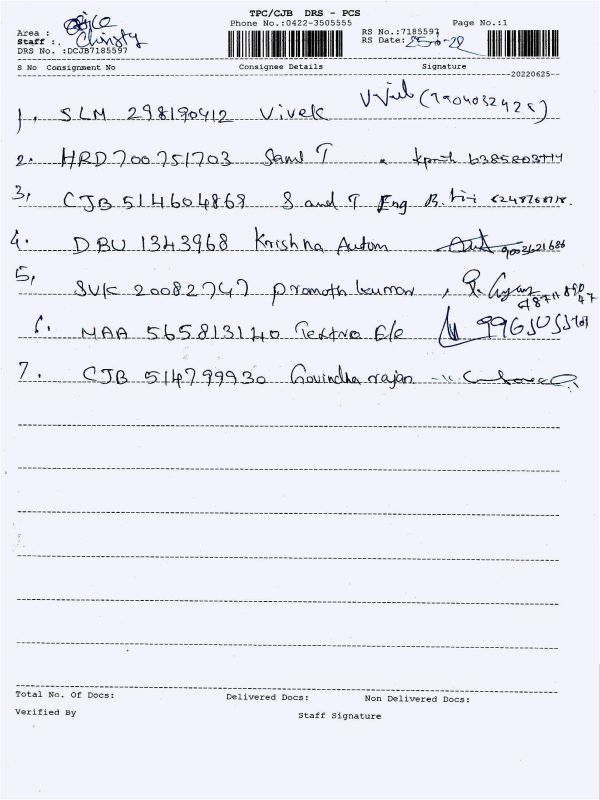 TPC/CJB DRS - PCS
Phone No.:0422-3505555 Page No.:1
Area : office
Staff : Christy
DRS No. :DCJB7185597
RS No.:7185597
RS Date: 25-6-22
S No Consignment No Consignee Details Signature
20220625
1. SLM 298190412 Vivek (7904032425)
2. HRD 700751703 Saml T
3, CJB 514604869 S and T Eng 6248768718.
4. DBU 1343968 Krishna Autom 9003621686
5, SVK 20082747 Promoth kumar
6. MAA 565813140 Textro E/e
7. CJB 514799930 Govindha rajan
Total No. Of Docs: Delivered Docs: Non Delivered Docs:
Verified By Staff Signature